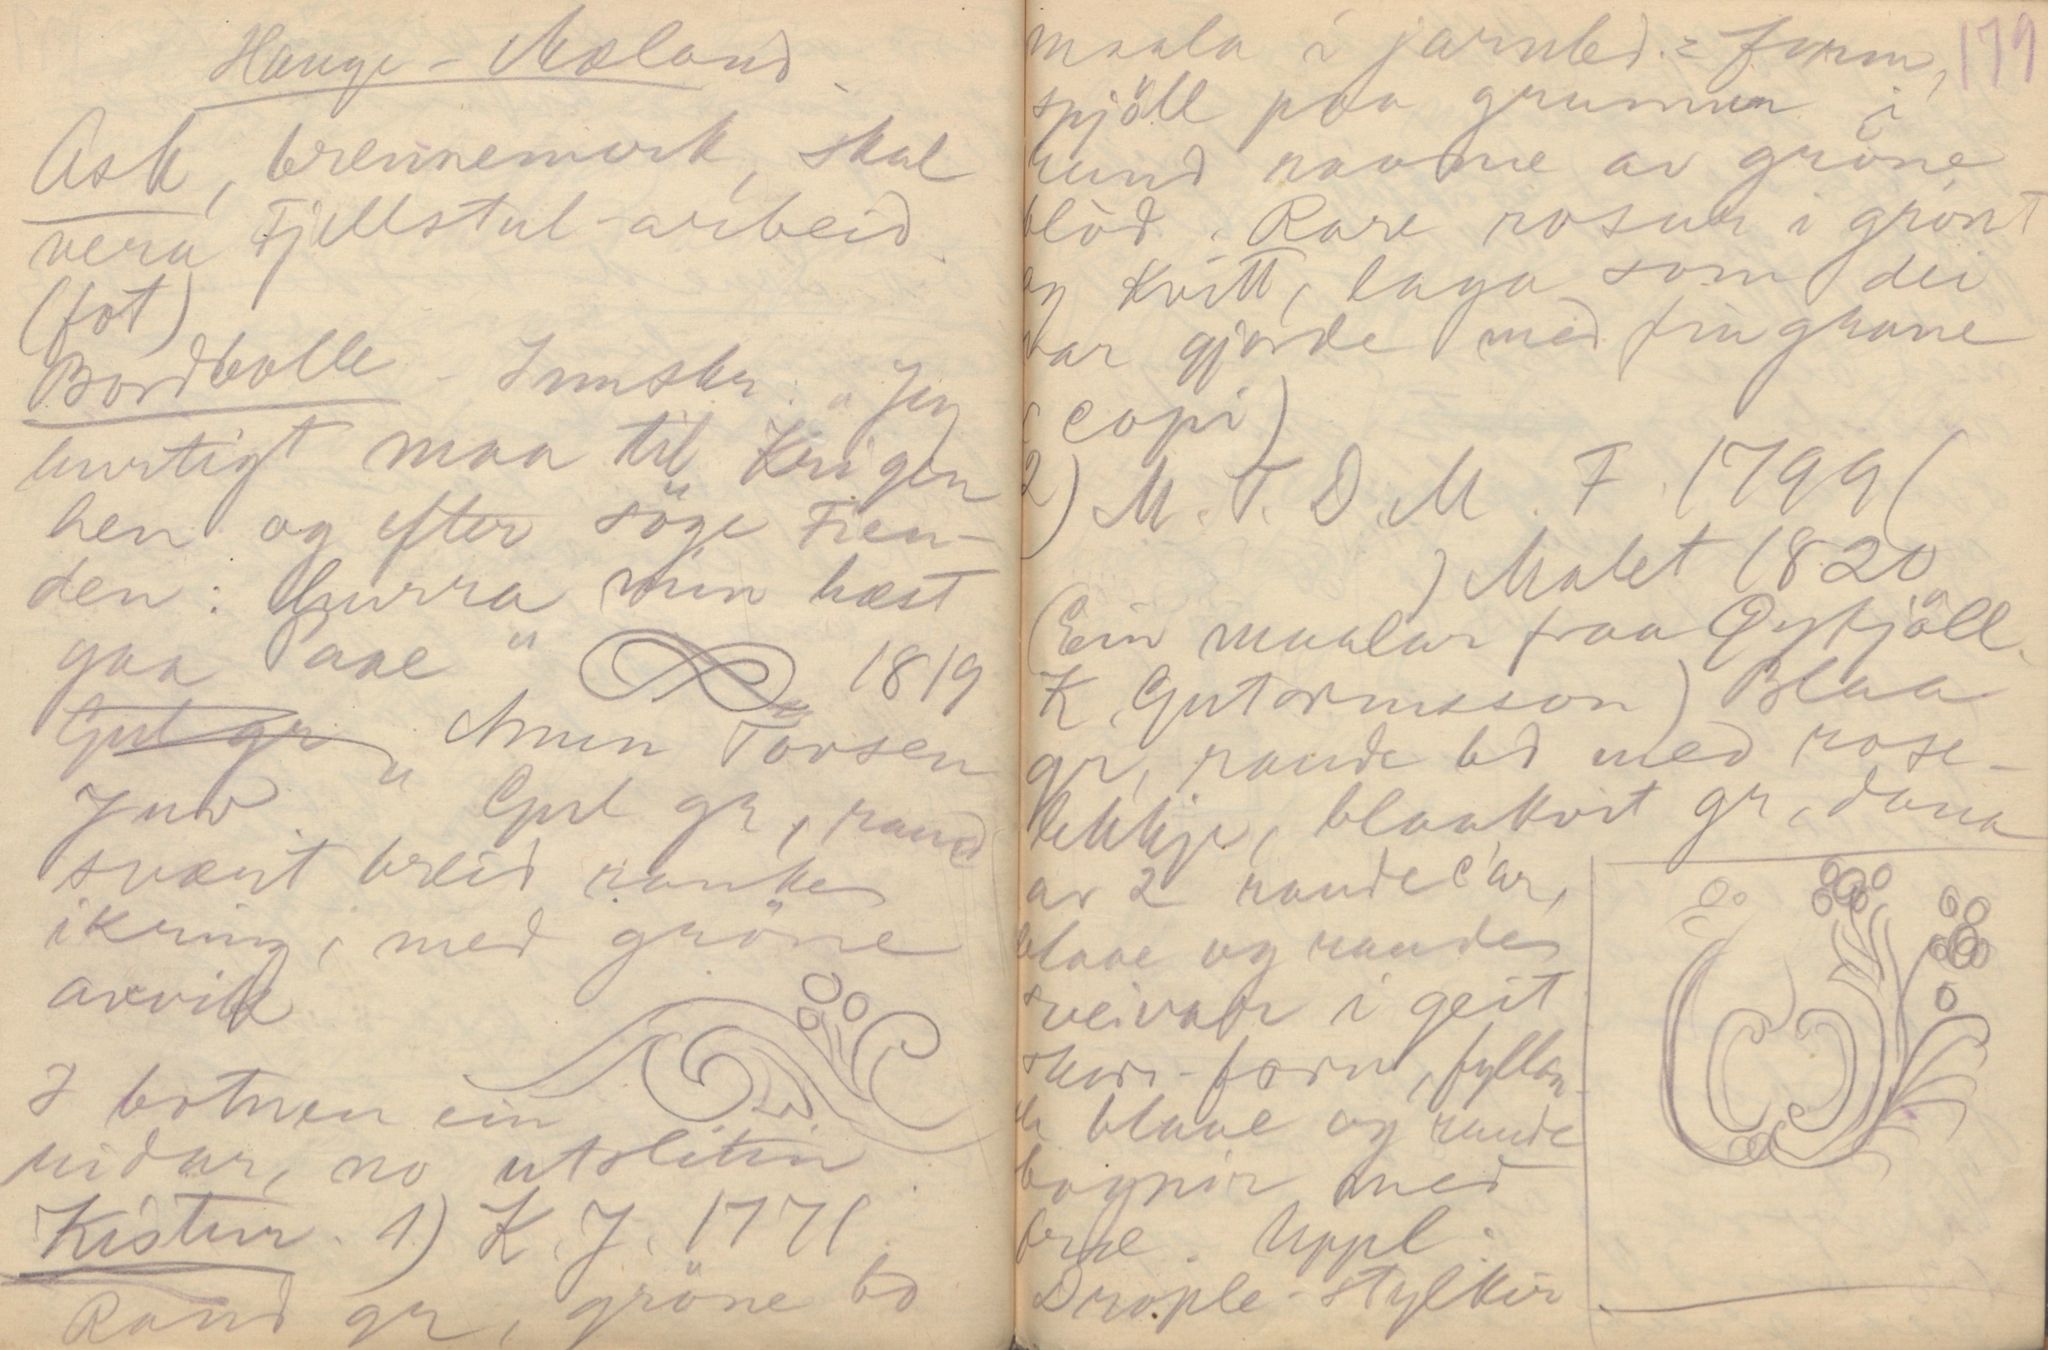 Hauge - Mæland.
Ask, brennemerk, skal
vera Fjellstul-arbeid.
(fot)
Bordbolle - Innskr: "Jeg
hurtigt maa til Krigen
hen og efter söge Fien-
den: hurra min hæst
gaa paae" 1819
Gul gr
"Amun Torsen
Juv" Gul gr, raud
svært breid ranke
ikring, med gröne
avvik
I botnen ein
ridar, no utslitin.
Kistur. 1) K. J. 1771.
Raud gr, gröne bd
179
maala i jarnbd. = form,
spjöll paa grunnen i
rund raame av gröne
blöd. Rare rosur i grönt
og kvitt, laga som dei
var gjorde med fingrane
(copi)
2) M. T. D. M. F. 1799 (
) Malet 1820
(Ein maalar fraa Öyfjöll.
K. Gutormsson) Blaa
gr, raude bd med rose-
lekkje, blaakvit gr, dana
av 2 raude c'ar,
blaae og raude
sveivar i geit
skor-form, fyllan-
de blaae og raude
bognir med
bræ. Uppl:
Drople-stylkir